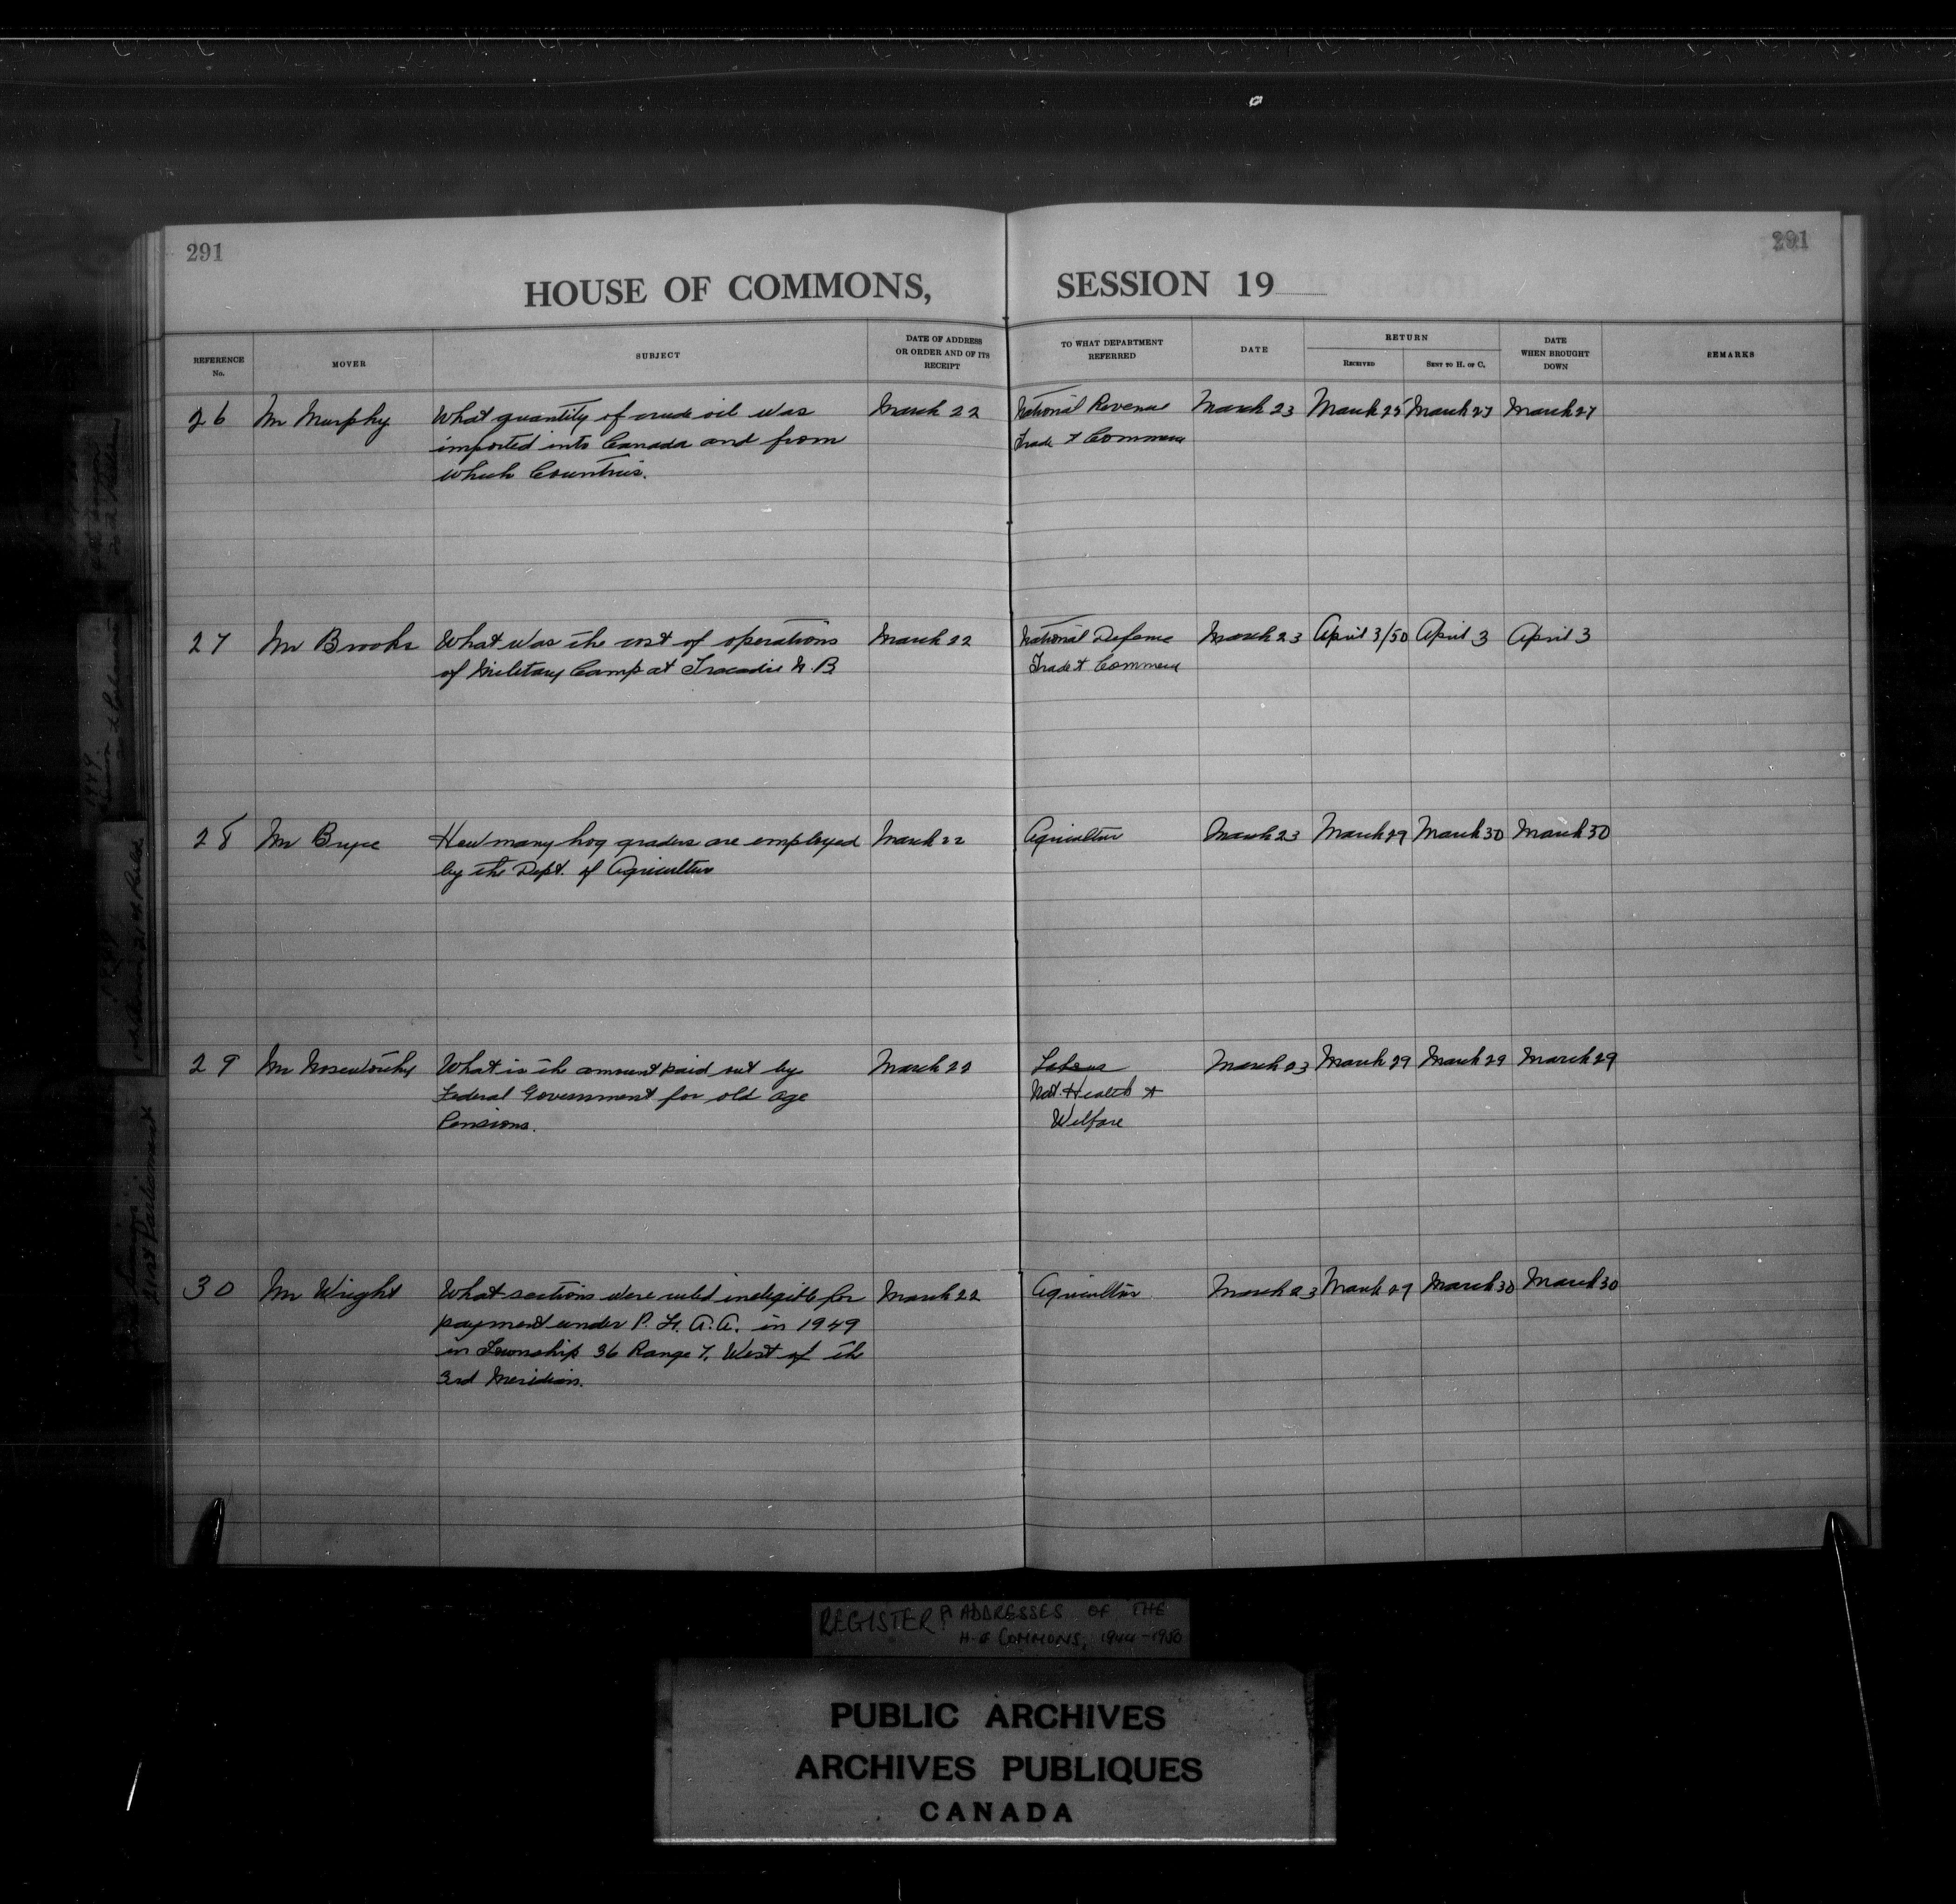 291
291
HOUSE OF COMMONS, SESSION 19
REFERENCE No.
MOVER
SUBJECT
DATE OF ADDRESS OR ORDER AND OF ITS RECEIPT
TO WHAT DEPARTMENT REFERRED
DATE
RETURN
RECEIVED
SENT TO H. OF C.
DATE WHEN BROUGHT DOWN
REMARKS
26 Mr Murphy What quantity of crude oil was March 22 National Revenue March 23 March 25 March 27 March 27
imported into Canada and from Trade & Commerce
which Countries.
27 Mr Brooks What was the cost of operations March 22 National Defence March 23 April 3/50 April 3 April 3
of Military Camp at Tracadie N.B. Trade & Commerce
28 Mr Bryce How many hog graders are employed March 22 Agriculture March 23 March 29 March 30 March 30
by the Dept. of Agriculture
29 Mr Noseworthy What is the amount paid out by March 22 Labour March 23 March 29 March 29 March 29
Federal Government for old age Nat. Health &
Pensions. Welfare
30 Mr Wright What sections were ruled ineligible for March 22 Agriculture March 23 March 29 March 30 March 30
payment under P. F. A. A. in 1949
in Township 36 Range 7, West of the
3rd Meridian.
21st Parliament
REGISTER ADDRESSES OF THE
H. of COMMONS, 1944-1950
PUBLIC ARCHIVES
ARCHIVES PUBLIQUES
CANADA